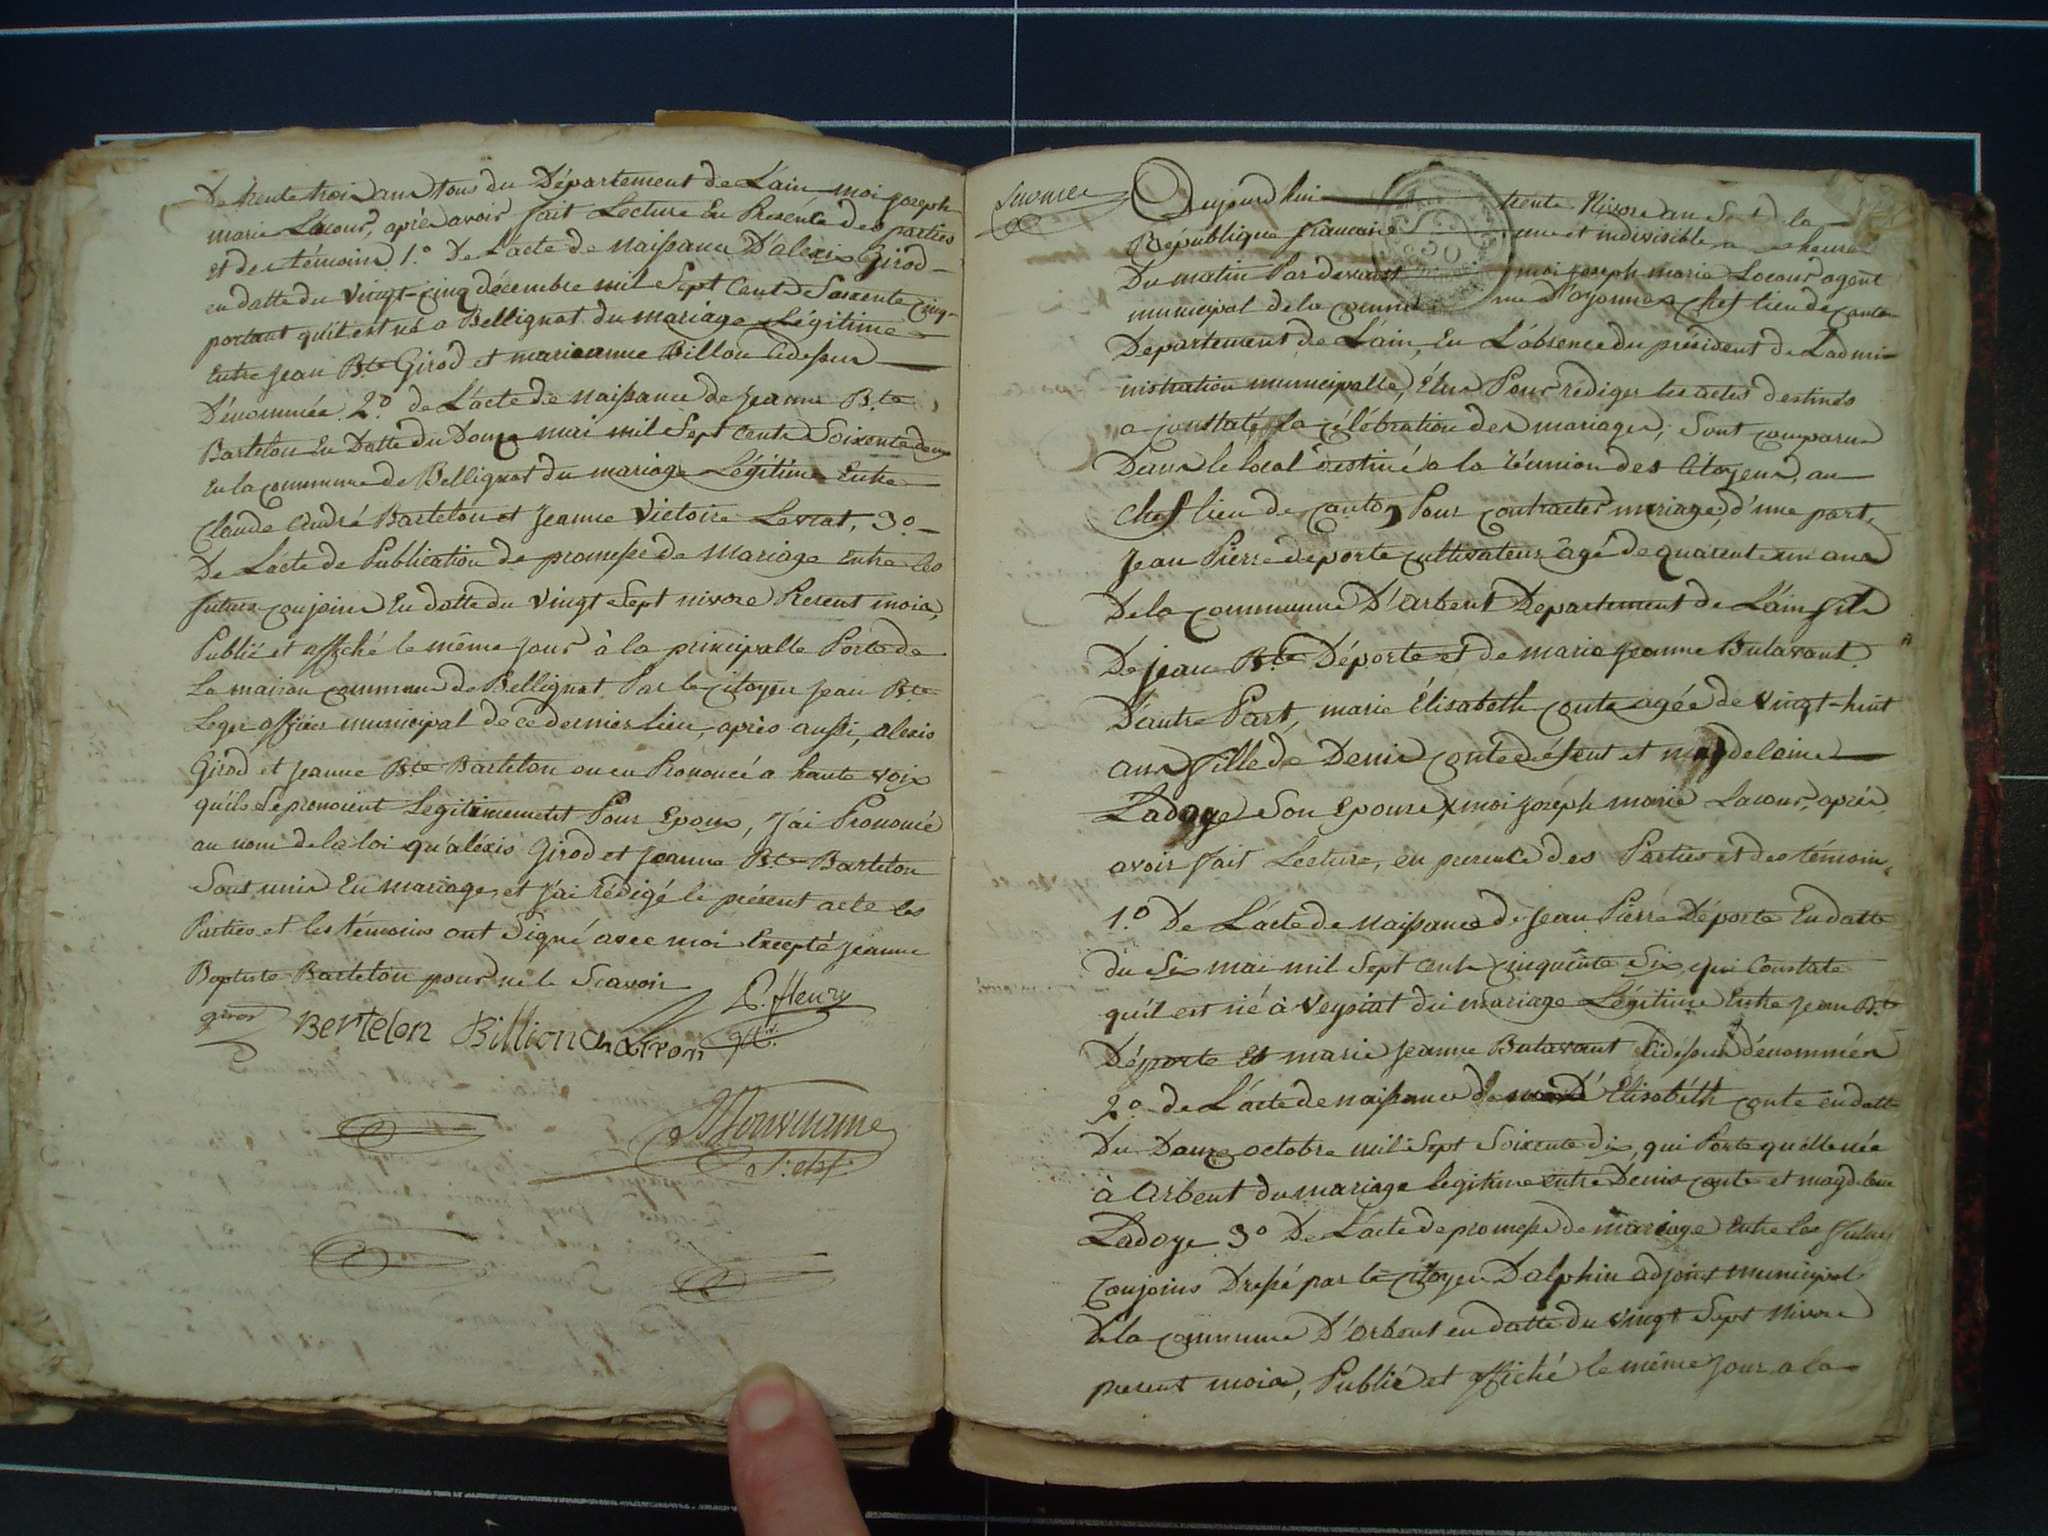 De trente trois ans tous du Département de L'ain, moi joseph
marie Lacour, après avoir fait Lecture En Presénce des parties
et des témoins 1.° De L'acte de naissance D'alexis Girod
en datte du vingt-cinq décembre mil Sept Cent Soixente cinq
portant qu'il est né a Bellignat du mariage Légitime
Entre jean Bte Girod et marieanne Billon Cidesus
Dénommée 2.° de L'acte de naissance de jeanne B.te
Bartelon En Datte du Douze mai mil Sept Cent Soixente douze
En la commune de Bellignat du mariage Légitime Entre
Claude André Bartelon et Jeanne Victoire Levrat, 3.°
De L'acte de Publication de promesse de Mariage Entre les
futurs conjoins En datte du vingt Sept nivose Present mois,
Publié et affiché le même jour à la principalle Porte de
La maison commune de Bellignat Par le Citoyen jean Bte
Leger officier municipal de ce dernier lieu, après aussi, alexis
Girod et jeanne Bte Bartelon ou eu Prononcé a haute voix
qu'ils Se prenoient Legitimement Pour Epoux, J'ai Prononcé
au nom de la loi qu'alexis Girod et Jeanne B.te Bartelon
Sont unis En mariage, et j'ai rédigé le présent acte les
Parties et les témoins ont Signé avec moi Excepté jeanne
Baptiste Bartelon pour ne le Scavoir
girod Bertelon Billion P. Henry
Suemer
Aujourd'hui trente Nivose an Sept de la
République francaise une et indivisible a heures
Du matin Par devant moi joseph marie Lacour agent
municipal de la commune D'oyonnax Chef lieu de canton
Département de L'ain, En L'absence du président de L'admi-
nistration municipalle, Élue Pour rediger les actes destinés
a constaté la célébration des mariages, Sont comparus
Dans le local destiné a la réunion des Citoyens, au
Chef lieu de canton Pour contracter mariage, d'une part,
Jean Pierre deporte cultivateur agé de quarente un ans
De la commune D'arbent Departement de L'ain fils
De jean B.te Déporte et de marie jeanne Butavant.
D'autre Part, marie Élisabeth conte agée de vingt-huit
ans fille de Denis conte défunt et magdelaine
Ladoye Son Epouse, moi joseph marie Lacour, après
avoir fait Lecture, en presence des Parties et des témoins,
1.° De L'acte de naissance de jean Pierre Déporte En datte
du Six mai mil Sept cent cinquènte Six, qui Constate
qu'il est né à Veyziat du mariage Légitime Entre jean B.te
Déporte Et marie jeanne Butavant Cidesus dénommés
2.° de L'acte de naissance de Elisabéth conte en datte
Du Douze octobre mil Sept Soixente dix, qui Porte qu'elle née
à Arbent du mariage legitime entre Denis conte et magdelaine
Ladoye 3.° De L'acte de promesse de mariage Entre les futurs
conjoins Dressé par le citoyen Dalphin adjoint municipal
de la commune D'arbent en datte du vingt Sept Nivose
present mois, Publié et affiché le même jour a la